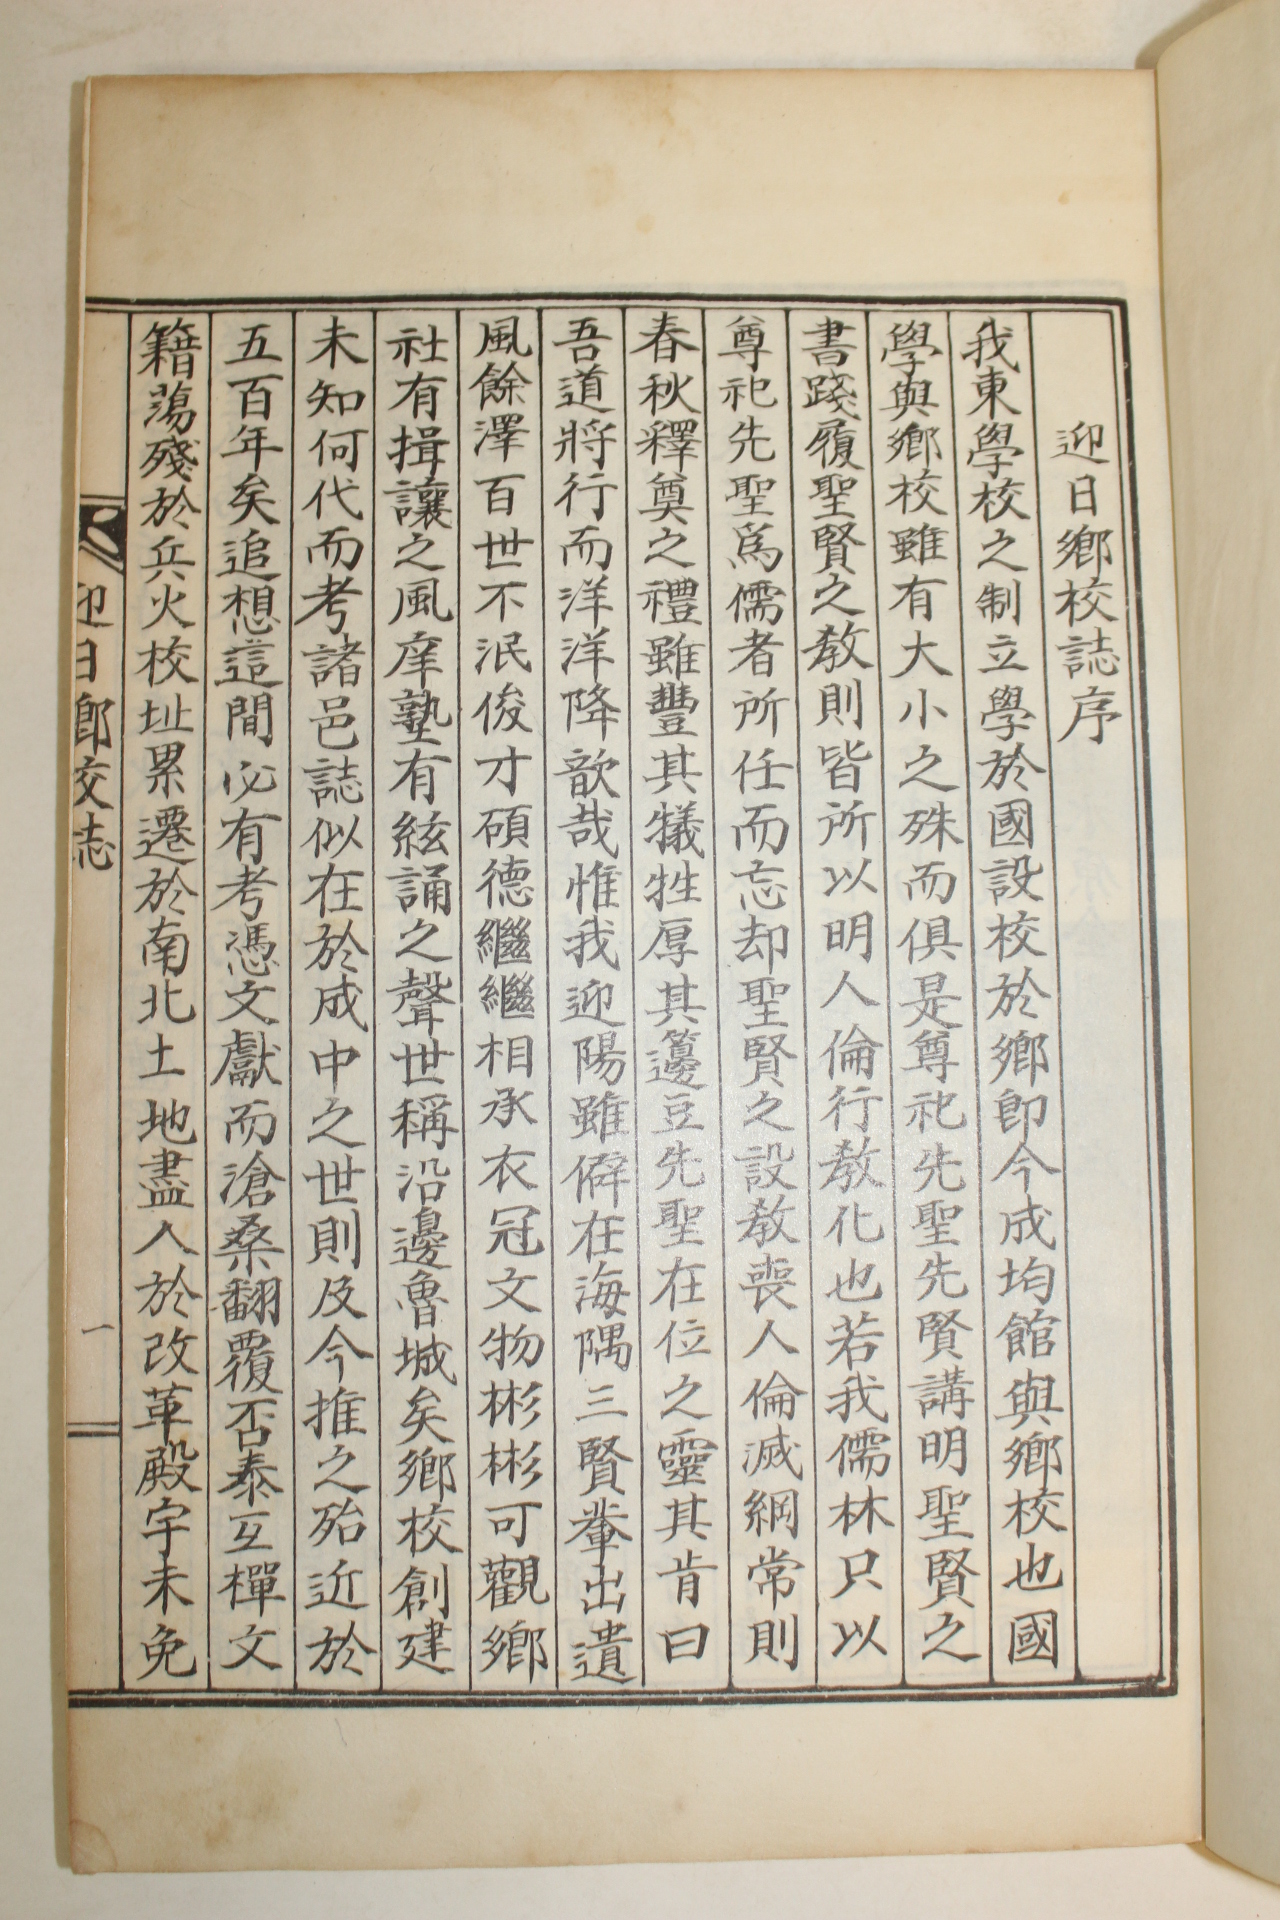 迎日鄉校誌序
我東學校之制立學於國設校於鄉卽今成均館與鄉校也國
學與鄉校雖有大小之殊而俱是尊祀先聖先賢講明聖賢之
書踐履聖賢之敎則皆所以明人倫行敎化也若我儒林只以
尊祀先聖爲儒者所任而忘却聖賢之設敎喪人倫滅綱常則
春秋釋奠之禮雖豐其犧牲厚其籩豆先聖在位之靈其肯曰
吾道將行而洋洋降歆哉惟我迎陽雖僻在海隅三賢輩出遺
風餘澤百世不泯俊才碩德繼繼相承衣冠文物彬彬可觀鄉
社有揖讓之風庠塾有絃誦之聲世稱沿邊魯城矣鄉校創建
未知何代而考諸邑誌似在於成中之世則及今推之殆近於
五百年矣追想這間必有考憑文獻而滄桑翻覆否泰互禪文
籍蕩殘於兵火校址累遷於南北土地盡入於改革殿宇未免
迎日鄉校誌
一